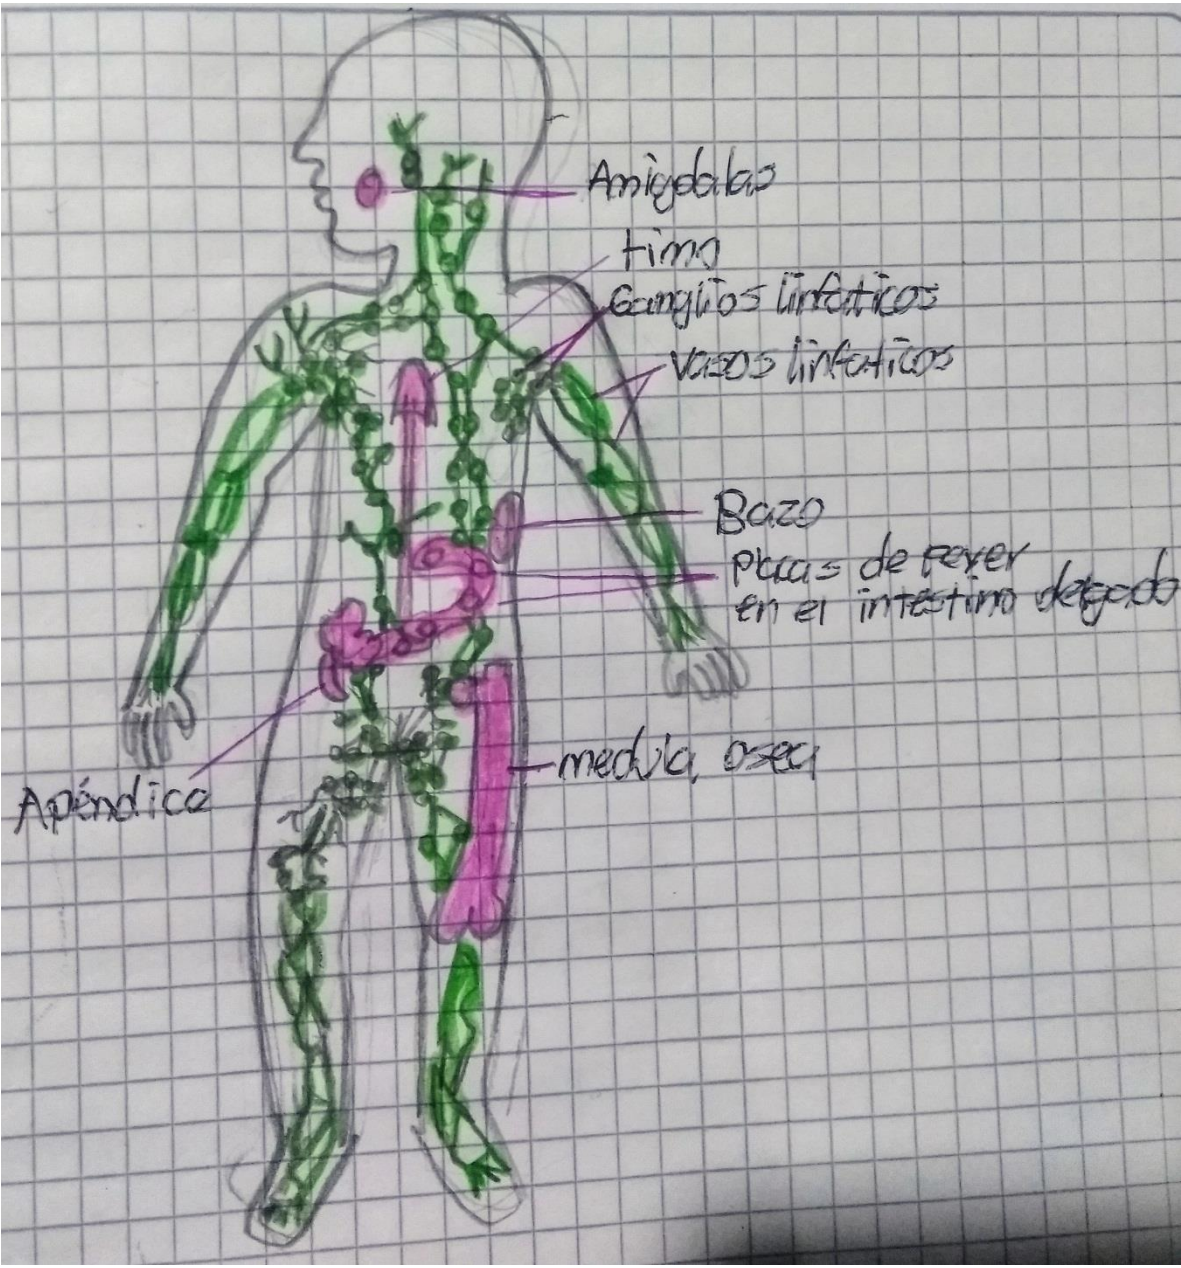 Amigdalas
timo
Ganglios linfaticos
vasos linfaticos
Bazo
Placas de peyer
en el intestino delgado
medula osea
Apéndice